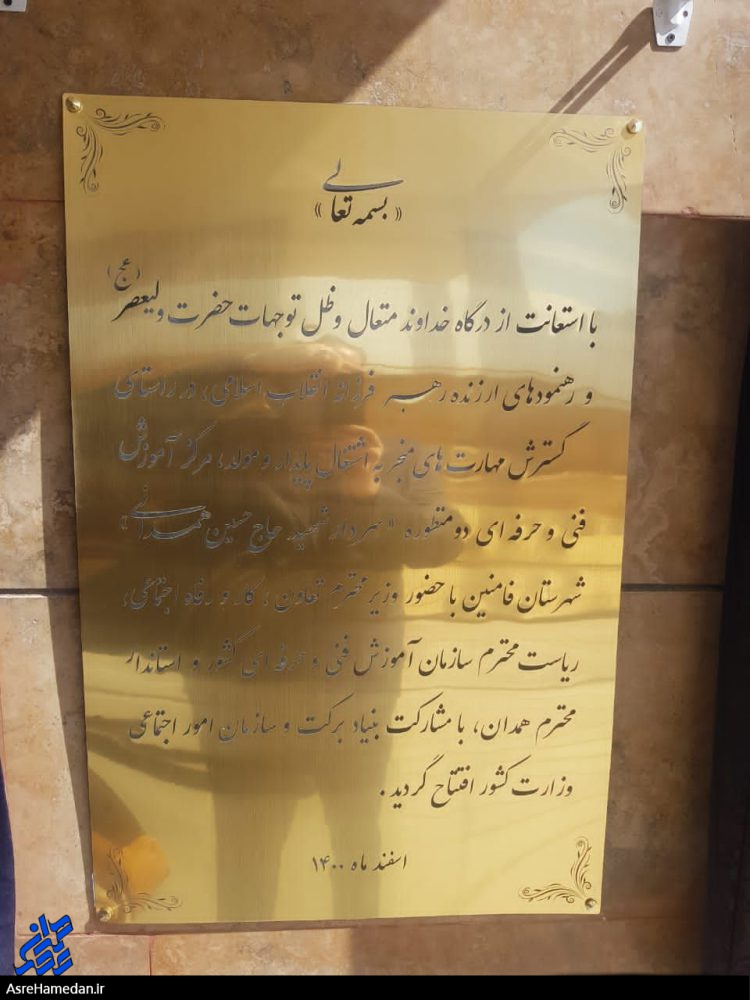 « بسمه تعالی »
با استعانت از درگاه خداوند متعال و ظل توجهات حضرت ولیعصر (عج)
و رهنمودهای ارزنده رهبر فرزانه انقلاب اسلامی، در راستای
گسترش مهارت های منجر به اشتغال پایدار و مولد، مرکز آموزش
فنی و حرفه ای دو منظوره «سردار شهید حاج حسین همدانی»
شهرستان فامنین با حضور وزیر محترم تعاون، کار و رفاه اجتماعی،
ریاست محترم سازمان آموزش فنی و حرفه ای کشور و استاندار
محترم همدان، با مشارکت بنیاد برکت و سازمان امور اجتماعی
وزارت کشور افتتاح گردید.
اسفند ماه ۱۴۰۰
AsreHamedan.ir